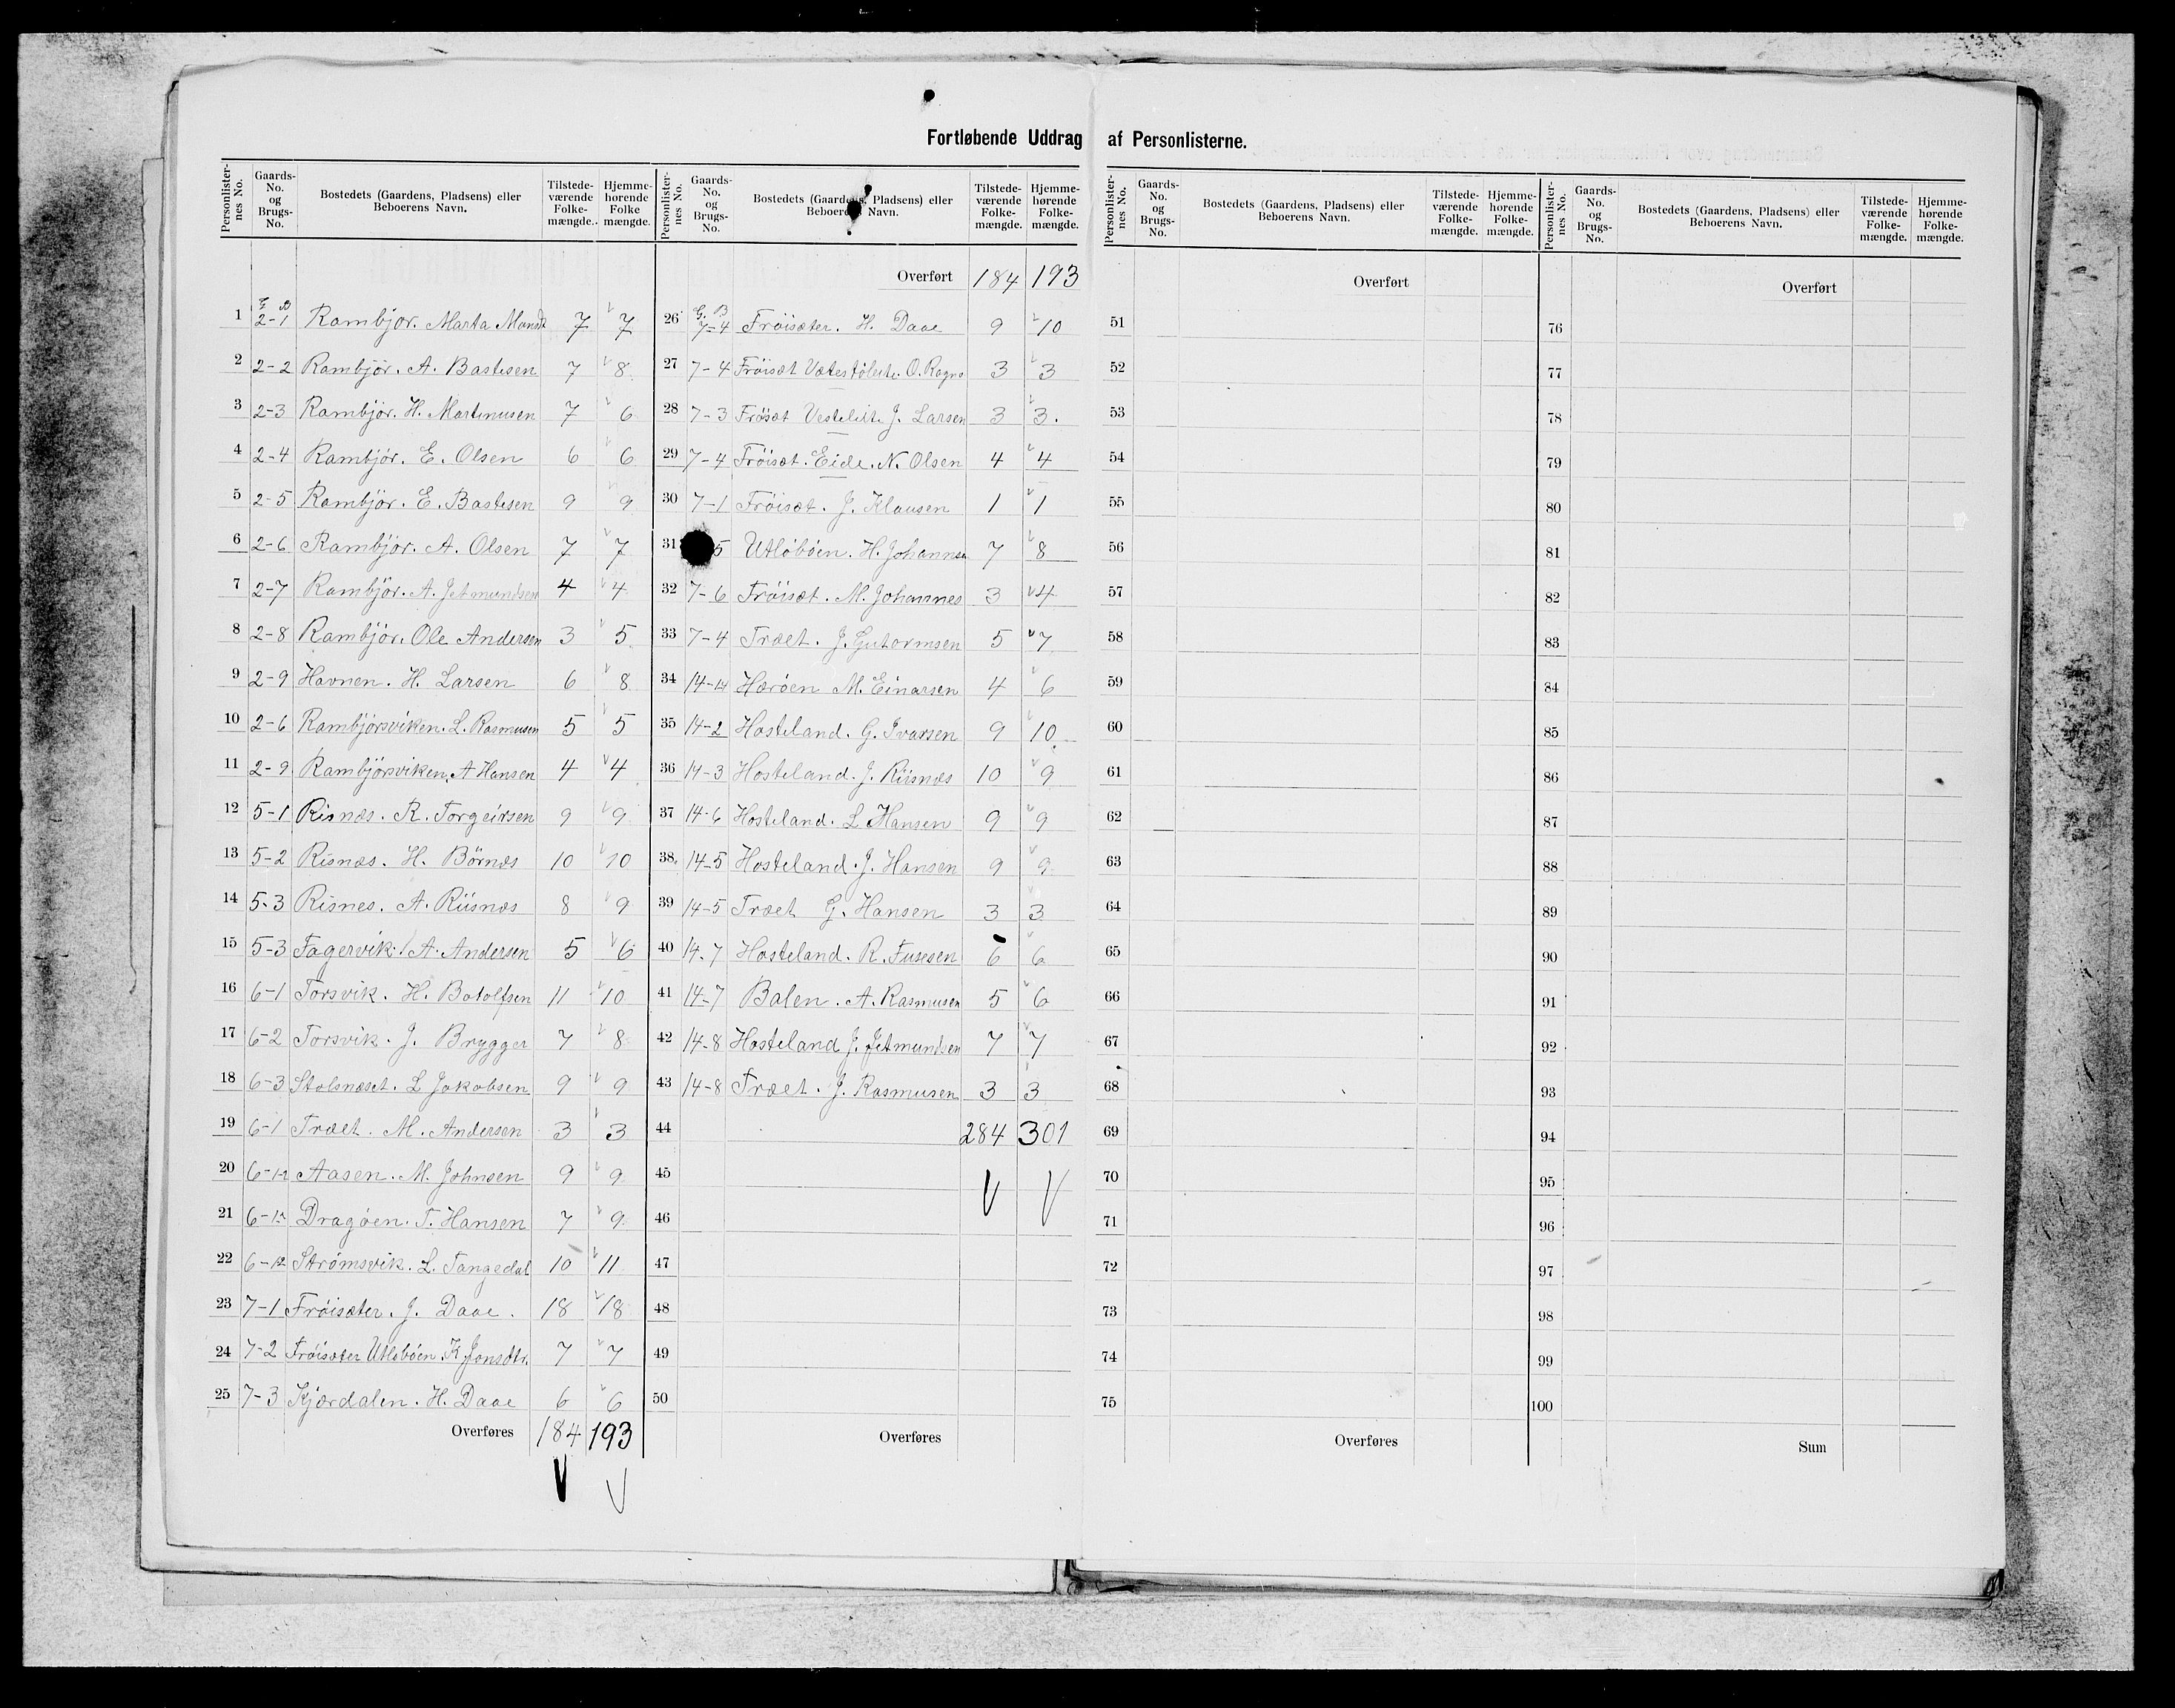 Fortløbende Uddrag af Personlisterne.
Personlister-nes No. | Gaards-No. og Brugs-No. | Bostedets (Gaardens, Pladsens) eller Beboerens Navn. | Tilstede-værende Folke-mængde. | Hjemme-hørende Folke mængde.
1 G B 2-1 Rambjør. Marta Monsdt 7 7
2 2-2 Rambjør. A. Bastesen 7 8
3 2-3 Rambjør. H. Martinusen 7 6
4 2-4 Rambjør. E. Olsen 6 6
5 2-5 Rambjør. E. Bastesen 9 9
6 2-6 Rambjør. A. Olsen 7 7
7 2-7 Rambjør. A. Jetmundsen 4 4
8 2-8 Rambjør. Ole Andersen 3 5
9 2-9 Havnen. H. Larsen 6 8
10 2-6 Rambjørsviken. L. Rasmusen 5 5
11 2-9 Rambjørsviken. A Hansen 4 4
12 5-1 Risnæs. R. Torgeirsen 9 9
13 5-2 Risnæs. H. Børnæs 10 10
14 5-3 Risnes. A. Riisnæs 8 9
15 5-3 Fagervik. A. Andersen 5 6
16 6-1 Torsvik. H. Botolfsen 11 10
17 6-2 Torsvik. J. Brygger 7 8
18 6-3 Stolsnæset. L Jakobsen 9 9
19 6-1 Træet. M. Andersen 3 3
20 6-12 Aasen. M. Johnsen 9 9
21 6-12 Dragøen. T. Hansen 7 9
22 6-12 Strømsvik. L. Tangedal 10 11
23 7-1 Frøisæter. J. Daae. 18 18
24 7-2 Frøisæter Utløbøen. K Jonsdtr. 7 7
25 7-3 Kjærdalen. H. Daae 6 6
Overføres 184 193
Personlister-nes No. | Gaards-No. og Brugs-No. | Bostedets (Gaardens, Pladsens) eller Beboerens Navn. | Tilstede-værende Folke-mængde. | Hjemme-hørende Folke-mængde.
Overført 184 193
26 G. B 7-4 Frøisæter. H. Daae 9 10
27 7-4 Frøisæt O. Ragns 3 3
28 7-3 Frøsæt J. Larsen 3 3.
29 7-4 Frøisæt. Eide. N. Olsen 4 4
30 7-1 Frøisæt. J. Klausen 1 1
31 5 Utløbøen. H. Johannsen 7 8
32 7-6 Frøisæt. M. Johannes 3 4
33 7-4 Træet. J. Gutormsen 5 7
34 14-14 Hærøen M. Einarsen 4 6
35 14-2 Hosteland. G. Ivarsen 9 10
36 14-3 Hosteland. J. Riisnæs 10 9
37 14-6 Hosteland. L Hansen 9 9
38. 14-5 Hosteland. J. Hansen 9 9
39 14-5 Træet G. Hansen 3 3
40 14-7 Hosteland. R. Fusesen 6 6
41 14-7 Balen. A. Rasmusen 5 6
42 14-8 Hosteland J. Jetmundsen 7 7
43 14-8 Træet. J. Rasmusen 3 3
44 284 301
45
46
47
48
49
50
Overføres
Personlister-nes No. | Gaards-No. og Brugs-No. | Bostedets (Gaardens, Pladsens) eller Beboerens Navn. | Tilstede-værende Folke-mængde. | Hjemme-hørende Folke-mængde.
Overført
51
52
53
54
55
56
57
58
59
60
61
62
63
64
65
66
67
68
69
70
71
72
73
74
75
Overføres
Personlister-nes No. | Gaards-No. og Brugs-No. | Bostedets (Gaardens, Pladsens) eller Beboerens Navn. | Tilstede-værende Folke-mængde. | Hjemme-hørende Folke-mængde.
Overført
76
77
78
79
80
81
82
83
84
85
86
87
88
89
90
91
92
93
94
95
96
97
98
99
100
Sum